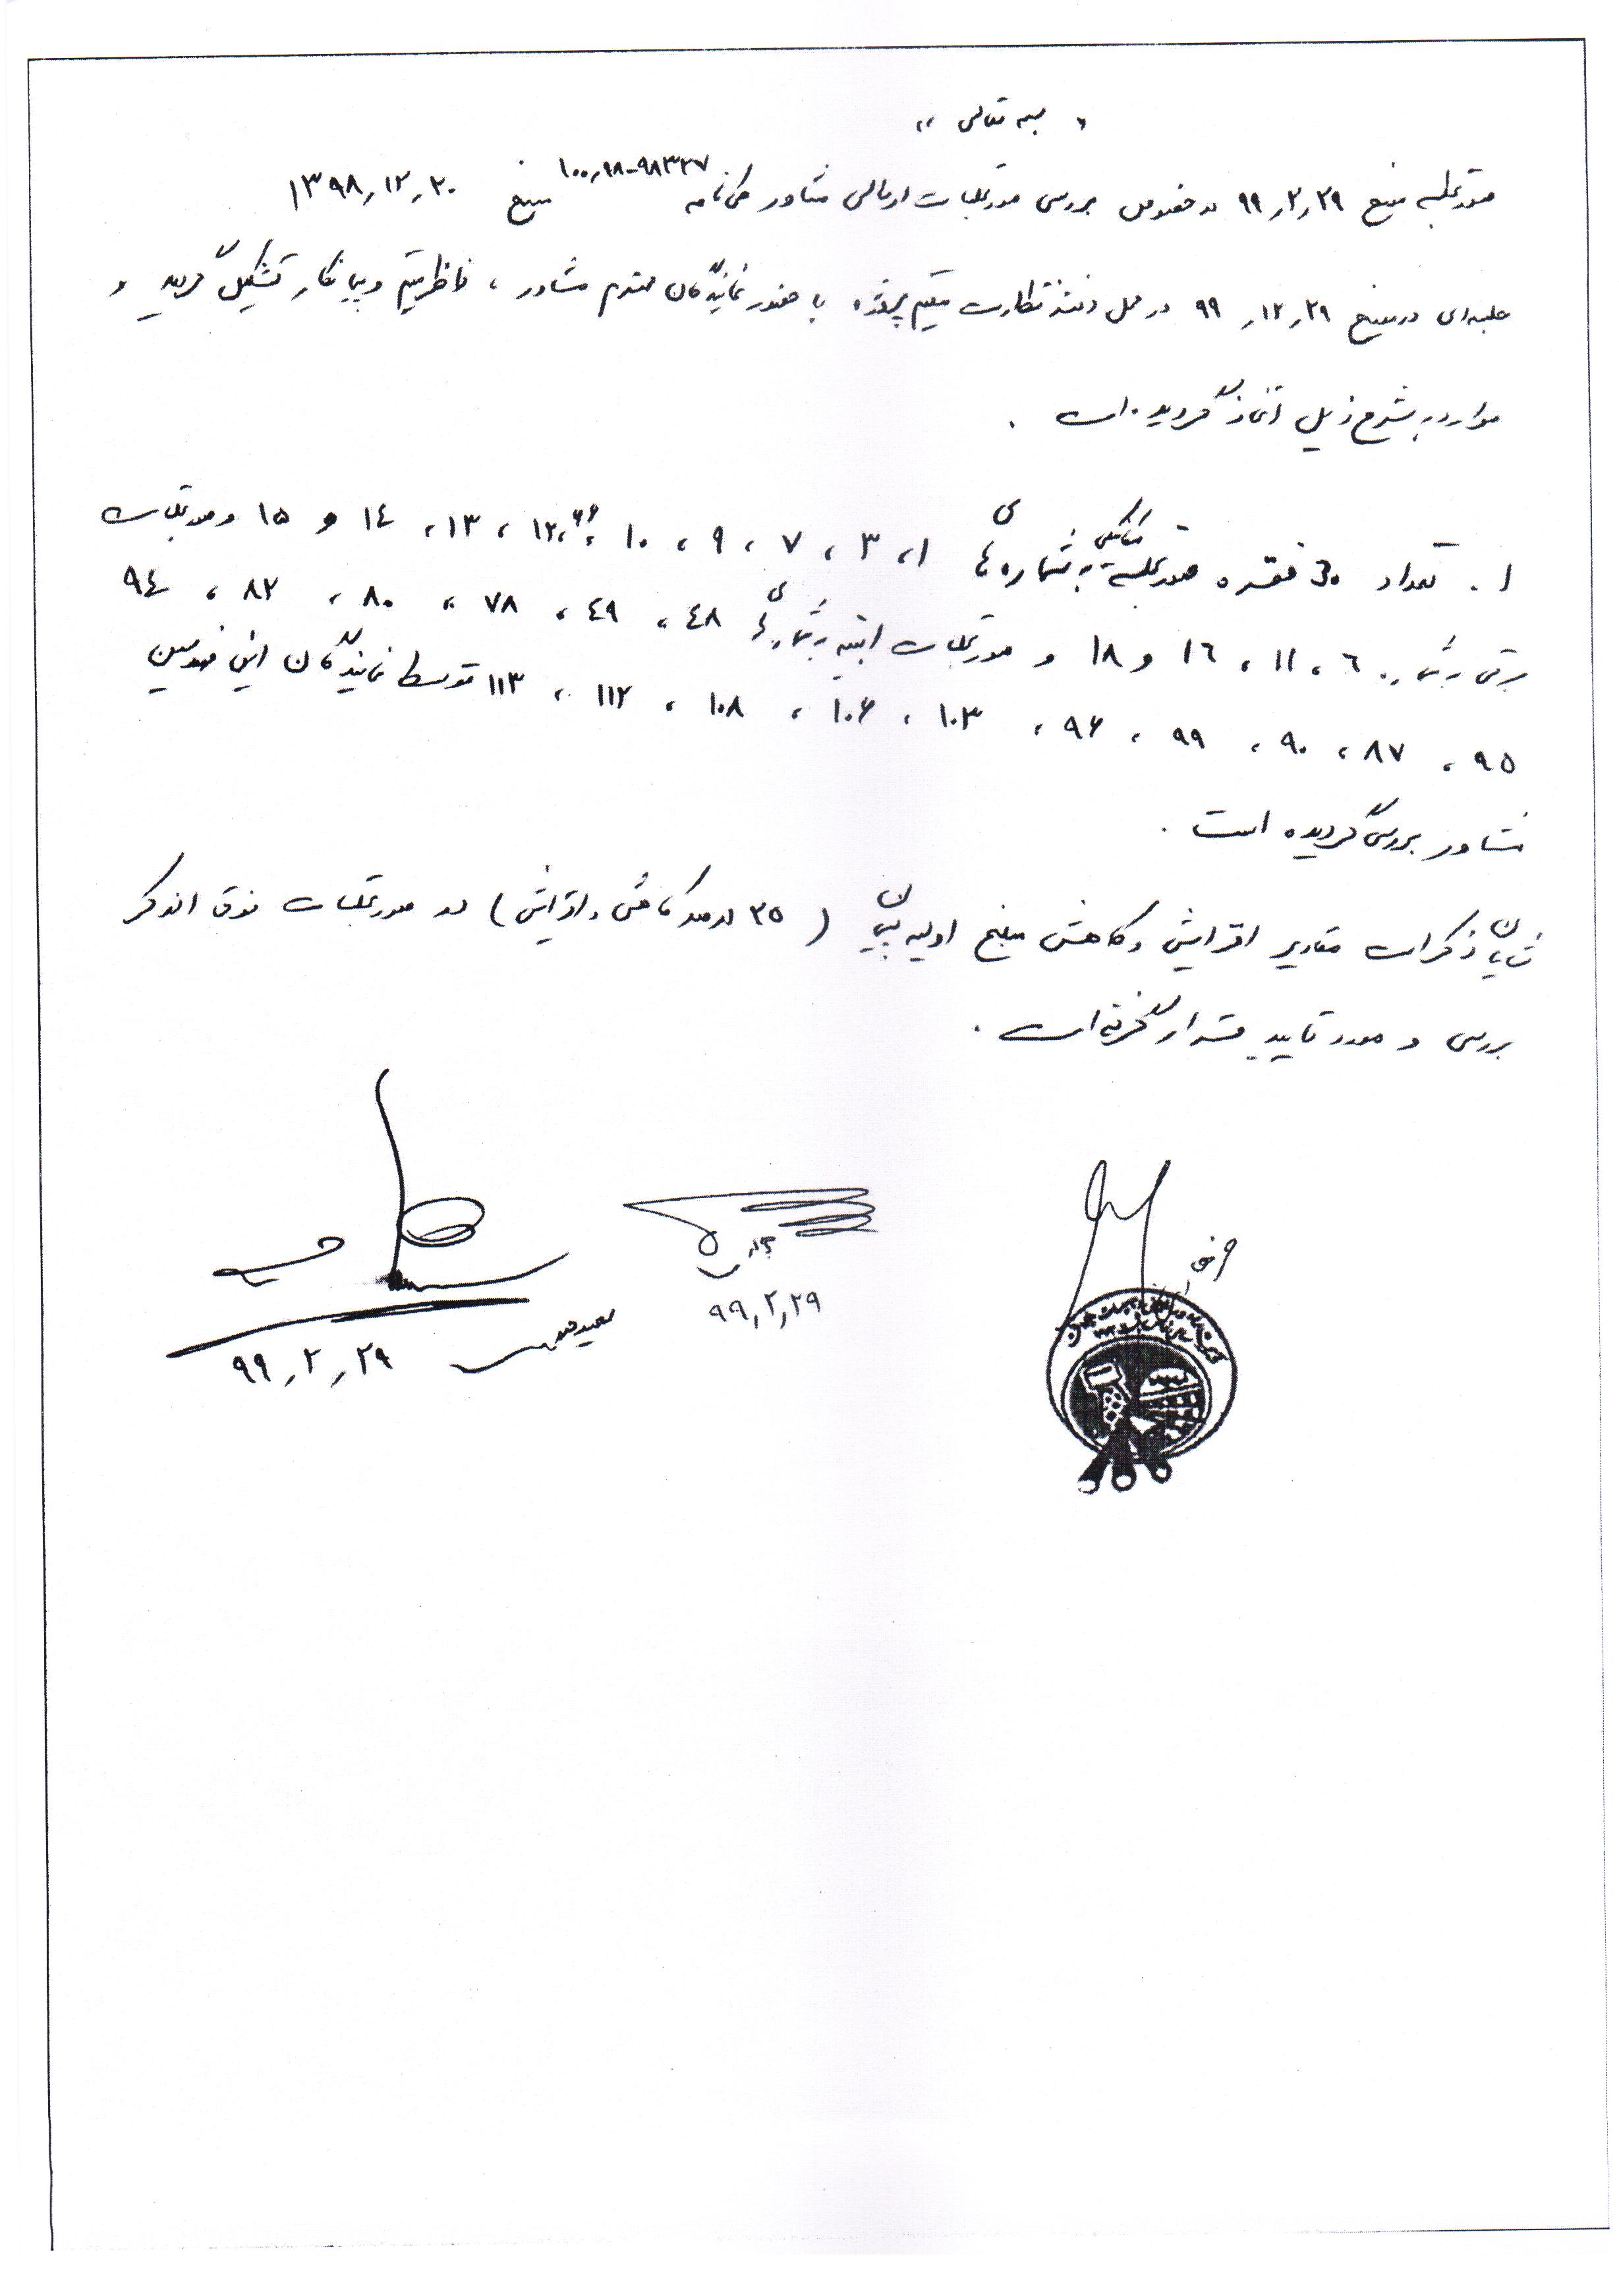 « بسمه تعالی »
صورتجلسه مورخ ۹۹٫۲٫۲۹ در خصوص بررسی صورتجلسات ارسالی مشاور طی نامه ۹۸۳۲۷-۱۰۰٫۹۸ مورخ ۱۳۹۸٫۱۲٫۲۰
جلسه‌ای در مورخ ۹۹٫۱۲٫۲۹ در محل دفتر نظارت مقیم پروژه با حضور نمایندگان محترم مشاور ، ناظر مقیم و پیمانکار تشکیل گردید و
موارد به شرح ذیل اتخاذ گردیده است .
۱. تعداد 30 فقره صورتجلسه مکانیکی به شماره های ۱، ۳ ، ۷ ، ۹ ، ۱۰ ، ۱۲ ، ۱۳ ، ۱٤ و ۱۵ و صورتجلسات
برقی بشماره ٦ ، ۱۱ ، ۱٦ و ۱۸ و صورتجلسات ابنیه بشماره های ٤۸ ، ٤۹ ، ۷۸ ، ۸۰ ، ۸۲ ، ۹٤
۹۵ ، ۸۷ ، ۹۰ ، ۹۹ ، ۹۶ ، ۱۰۳ ، ۱۰۶ ، ۱۰۸ ، ۱۱۲ ، ۱۱۳ توسط نمایندگان این مهندسین
مشاور بررسی گردیده است .
شایان ذکر است مقادیر افزایش و کاهش مبلغ اولیه پیمان ( ۲۵ درصد کاهش و افزایش ) در صورتجلسات فوق الذکر
بررسی و مورد تایید قرار نگرفته است .
۹۹٫۲٫۲۹
۹۹٫۲٫۲۹